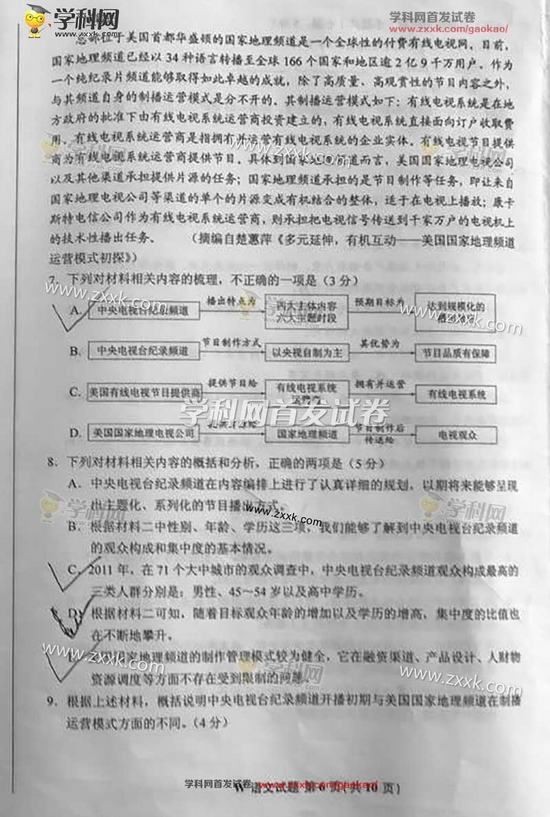 学科网 学科网首发试卷 学科网
www.zxxk.com/gaokao/
总部位于美国首都华盛顿的国家地理频道是一个全球性的付费有线电视网。目前，
国家地理频道已经以 34 种语言转播至全球 166 个国家和地区逾 2 亿 9 千万用户。作为
一个纯纪录片频道能够取得如此卓越的成就，除了高质量、高观赏性的节目内容之外，
与其频道自身的制播运营模式是分不开的。其制播运营模式如下：有线电视系统是在地
方政府的批准下由有线电视系统运营商投资建立的，有线电视系统直接面向订户收取费
用。有线电视系统运营商是指拥有并运营有线电视系统的企业实体。有线电视节目提供
商为有线电视系统运营商提供节目。具体到国家地理频道而言，美国国家地理电视公司
以及其他渠道承担提供片源的任务；国家地理频道承担的是节目制作等任务，即让来自
国家地理电视公司等渠道的单个的片源变成有机结合的整体，适于在电视上播放；康卡
斯特电信公司作为有线电视系统运营商，则承担把电视信号传送到千家万户的电视机上
的技术性播出任务。 （摘编自楚蕙萍《多元延伸，有机互动——美国国家地理频道
运营模式初探》）
7．下列对材料相关内容的梳理，不正确的一项是（3 分）
A． 中央电视台纪录频道 播出特点为 四大主体内容 六大主题时段 预期目标为 达到规模化的
B． 中央电视台纪录频道 节目制作方式 以央视自制为主 其优势为 节目品质有保障
C． 美国有线电视节目提供商 提供节目给 有线电视系统 运营商 拥有并运营 有线电视系统
D． 美国国家地理电视公司 国家地理频道 节目制作后 传送给 电视观众
8．下列对材料相关内容的概括和分析，正确的两项是（5 分）
A．中央电视台纪录频道在内容编排上进行了认真详细的规划，以期将来能够呈现
出主题化、系列化的节目播出方式。
B．根据材料二中性别、年龄、学历这三项，我们能够了解到中央电视台纪录频道
的观众构成和集中度的基本情况。
C．2011 年，在 71 个大中城市的观众调查中，中央电视台纪录频道观众构成最高的
三类人群分别是：男性、45～54 岁以及高中学历。
D．根据材料二可知，随着目标观众年龄的增加以及学历的增高，集中度的比值也
在不断地攀升。
国家地理频道的制作管理模式较为健全，它在融资渠道、产品设计、人财物
资源调度等方面不存在受到限制的问题。
9．根据上述材料，概括说明中央电视台纪录频道开播初期与美国国家地理频道在制播
运营模式方面的不同。（4 分）
学科网首发试卷 www.zxxk.com/gaokao/
W 语文试题 第 6 页（共 10 页）